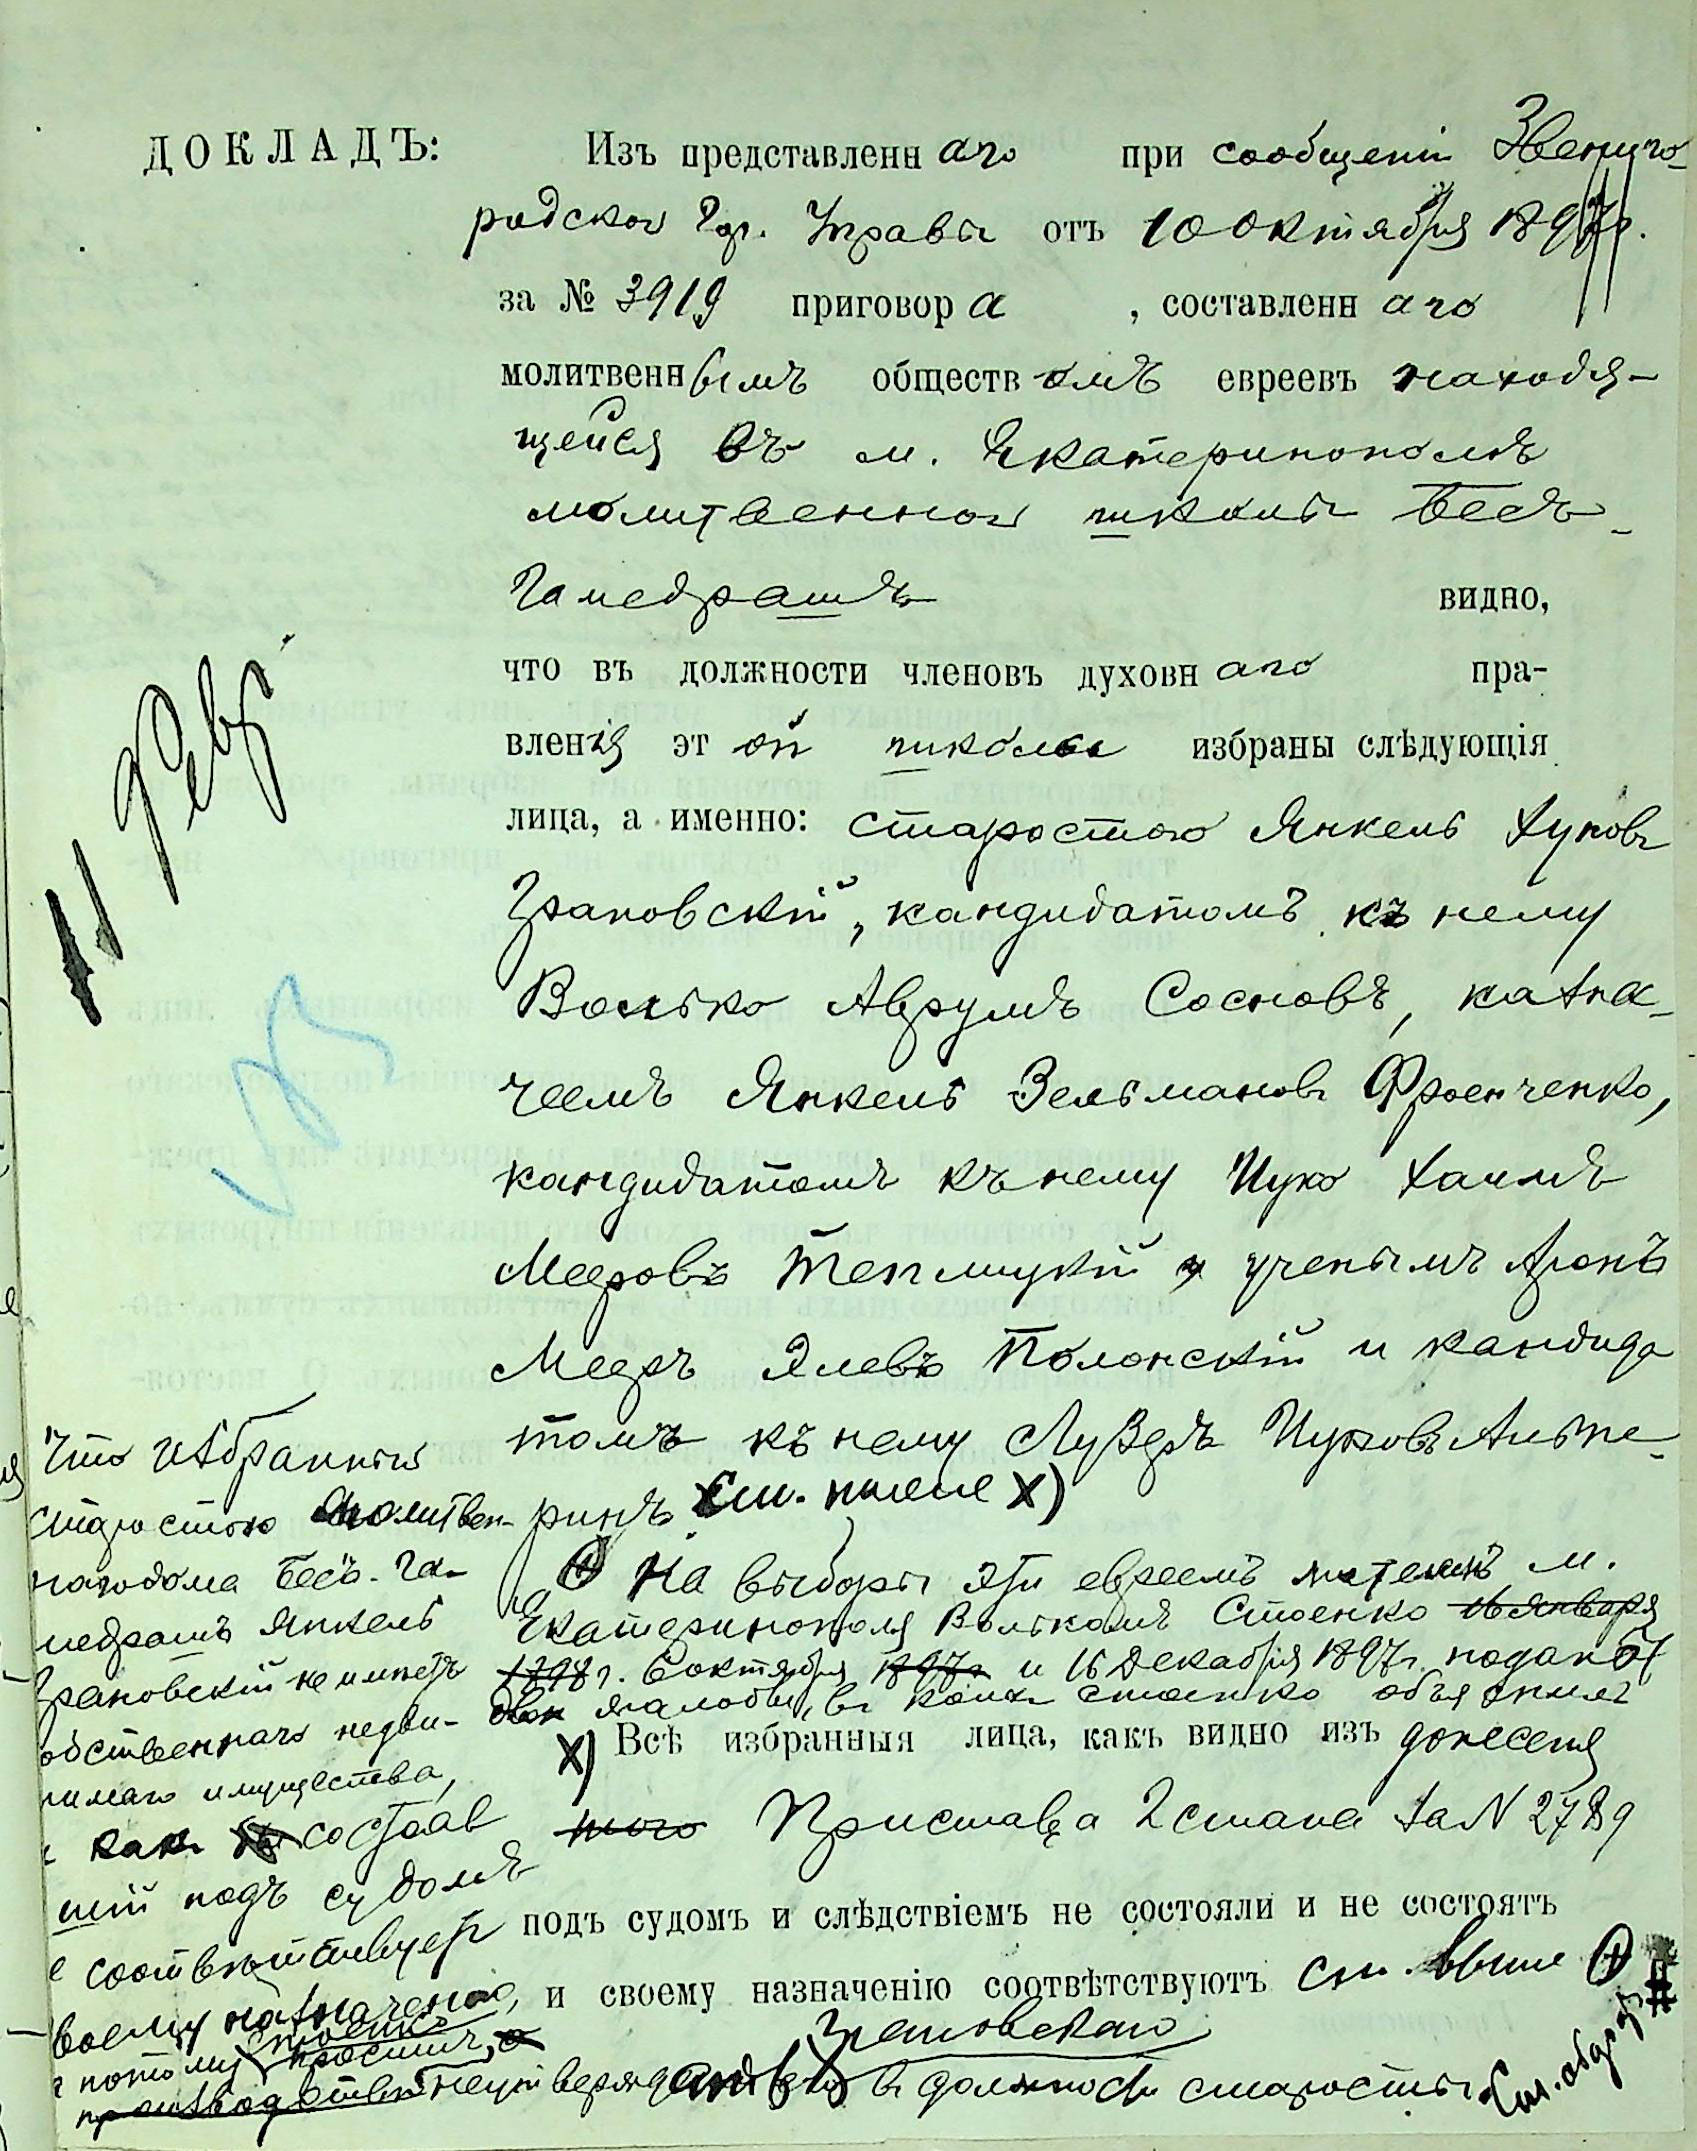 ДОКЛАДЪ:
Изъ представленнаго при сообщеніи Звениго-
родской Гор. Управы отъ 10 Октября 1897 г.
за № 3919 приговора, составленнаго
молитвеннымъ обществомъ евреевъ находя-
щейся въ м. Екатеринополѣ
молитвенной школы Бесъ-
Гамедрашъ видно,
что въ должности членовъ духовнаго пра-
вленія этой школы избраны слѣдующія
лица, а именно: старостою Янкель
Грановскій, кандидатомъ къ нему
Волько Аврумъ Сосновъ, казна-
чеемъ Янкель Зельмановъ Фроенченко,
кандидатомъ къ нему Ицко Хаимъ
Мееровъ Теплицкій и ученымъ Аронъ
Мееръ Полонскій и кандида
томъ къ нему Лузеръ Ицковъ Альпе-
ринъ См. ниже Х)
На выборы эти евреемъ м.
Екатеринополя Вольком Стоенко 16 января
1898 г. 6 октября 1897 г. и 16 Декабря 1897 г. поданы
две жалобы, въ коихъ Стоенко объяснилъ
Х) Всѣ избранныя лица, какъ видно изъ донесенія
того Пристава 2 стана за N 2789
подъ судомъ и слѣдствіемъ не состояли и не состоятъ
и своему назначенію соотвѣтствуютъ См. выше
11 Февр.
что избранный
старостою молитвен-
наго дома Бесъ-Га-
медрашъ Янкель
Грановскій не имѣетъ
обственнаго недви-
жимаго имущества,
и какъ состояв
шій подъ судомъ
е соотвѣтствуетъ
воему назначенію,
потому Стоенко проситъ
производства не утверждать въ должности старосты
См. обор.
#